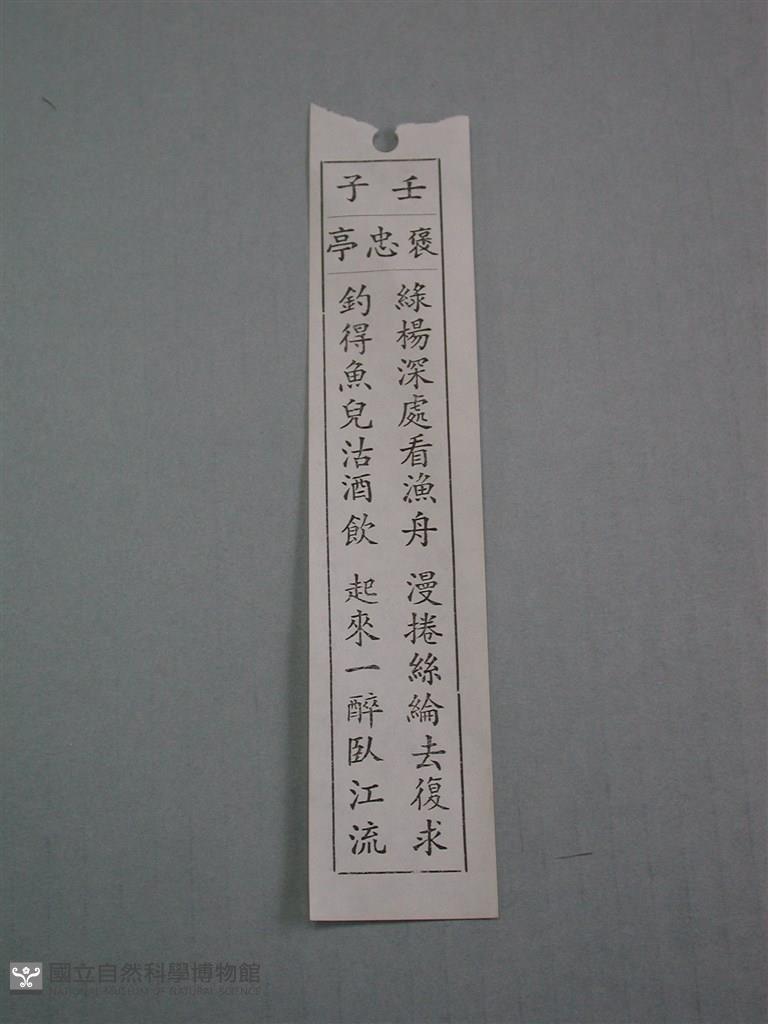 壬子
褒忠亭
綠楊深處看漁舟
漫捲絲綸去復求
釣得魚兒沽酒飲
起來一醉臥江流
國立自然科學博物館
NATIONAL MUSEUM OF NATURAL SCIENCE